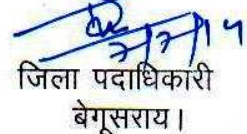 जिला पदाधिकारी
बेगूसराय।